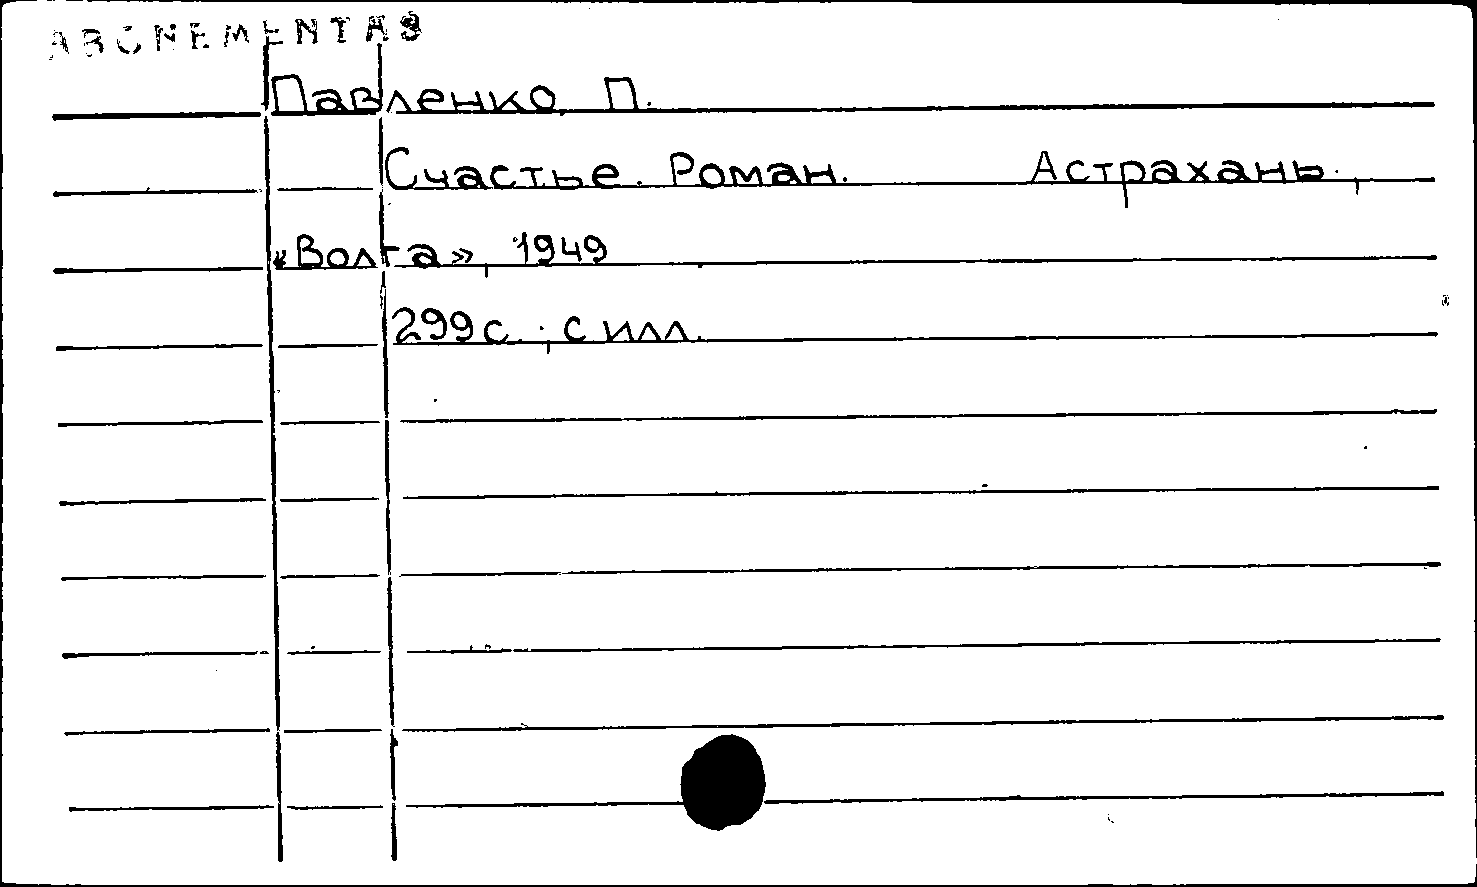 ABONEMENTAS
Павленко, П.
Счастье. Роман. Астрахань.,
«Волга», 1949
299 с. ; с илл.